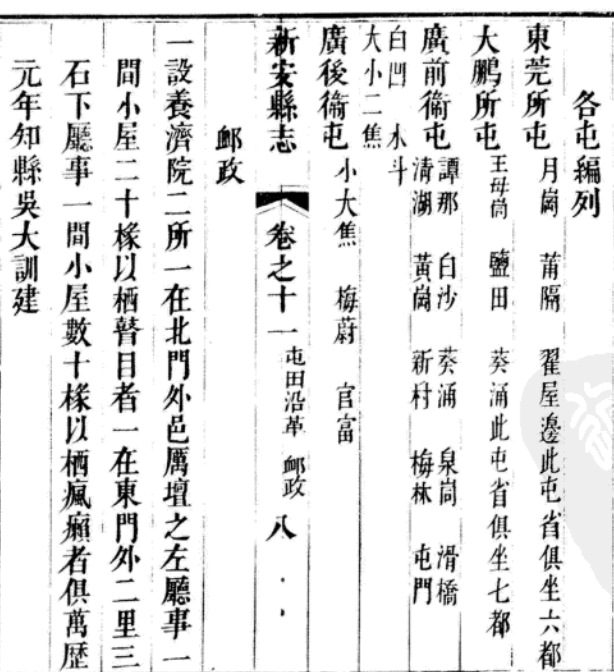 各屯編列
東莞所屯 月崗 莆隔 翟屋邊此屯省俱坐六都
大鵬所屯 王母崗 鹽田 葵涌此屯省俱坐七都
廣前衞屯 譚那 白沙 葵涌 泉崗 滑橋
清湖 黃崗 新村 梅林 屯門
白凹 木斗
大小二焦
廣後衞屯 小大焦 梅蔚 官富
新安縣志 卷之十一 屯田沿革 卹政 八
卹政
一設養濟院二所一在北門外邑厲壇之左廳事一
間小屋二十椽以栖瞽目者一在東門外二里三
石下廳事一間小屋數十椽以栖瘋癩者俱萬歷
元年知縣吳大訓建